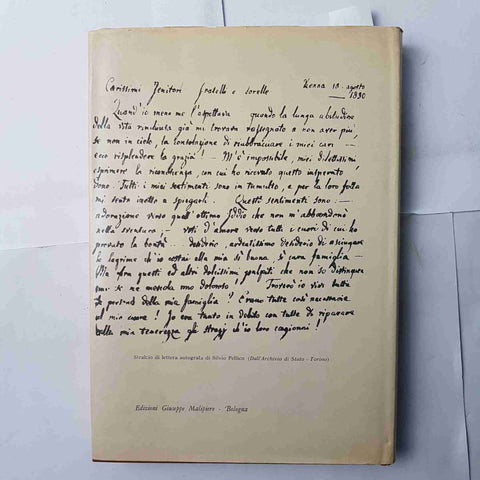 Carissimi Genitori fratelli e sorelle Vienna 18. agosto
1830
Quand'io meno me l'aspettava quando la lunga abitudine
della vita rinchiusa già mi trovava rassegnato a non aver più,
se non in cielo, la consolazione di riabbracciare i miei cari —
ecco risplendere la grazia! — M'è impossibile, miei dilettissimi
esprimere la riconoscenza, con cui ho ricevuto questo insperato
dono. Tutti i miei sentimenti sono in tumulto, e per la loro folla
mi sento inetto a spiegarli. Questi sentimenti sono: —
adorazione verso quell'ottimo Iddio che non m'abbandonò
nella sventura; — voti d'amore verso tutti i cuori di cui ho
provato la bontà — desiderio, ardentissimo desiderio di asciugare
le lagrime ch'io costai alla mia sì buona sì cara famiglia —
Ma fra questi ed altri dolcissimi palpiti che non so distinguere
se ne mescola uno doloroso! Troverò io vivi tutti
della mia famiglia! Erano tutte così necessarie
al mio cuore! Io era tanto in debito con tutte di riparare
colla mia tenerezza gli strazj ch'io loro cagionai!
Stralcio di lettera autografa di Silvio Pellico (Dall'Archivio di Stato - Torino)
Edizioni Giuseppe Malipiero - Bologna